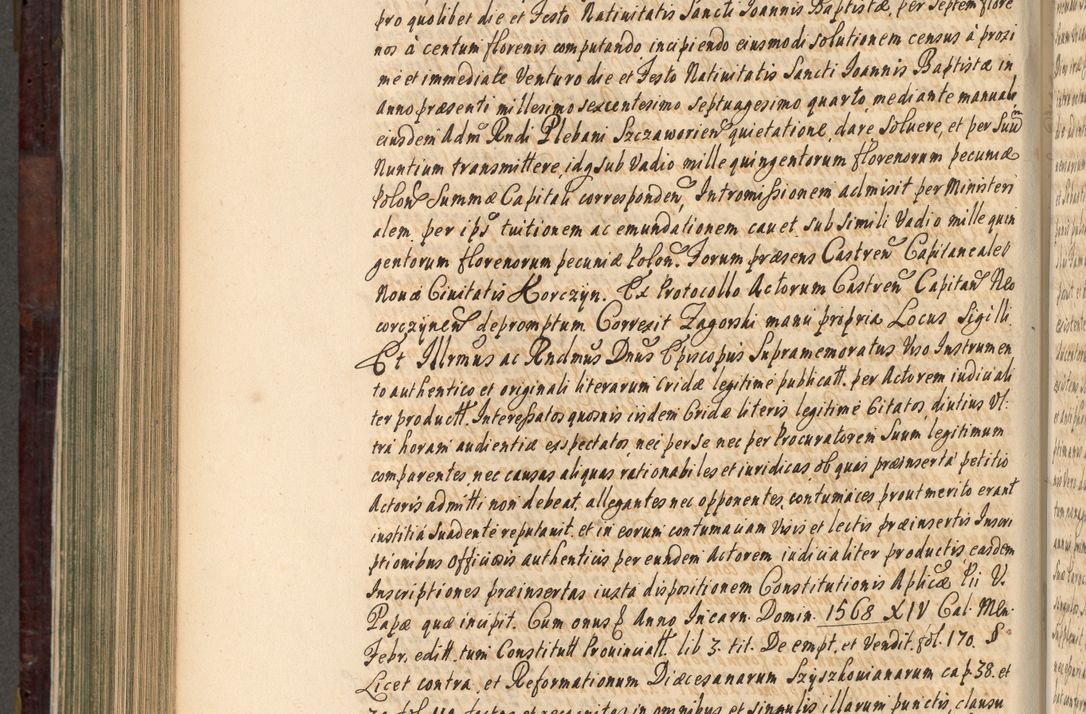 pro quolibet die et Festo Natiuitatis Sancti Ioannis Baptistæ, per septem flore
nos à centum florenis computando incipiendo eiusmodi solutionem census à proxi
me et immediate Venturo die et Festo Natiuitatis Sancti Ioannis Baptistæ in
Anno præsenti millesimo sexcentesimo septuagesimo quarto, mediante manuali
eiusdem Adm Rndi Plebani Szczaworien quietatione, dare, soluere, et per Suum
Nuntium transmittere, idq sub Vadio mille quingentorum florenorum pecuniæ
Polon Summæ Capitali corresponden, Intromissionem admisit per Ministeri
alem per ips tuitionem ac emundationem cauet sub simili Vadio mille quin
gentorum florenorum pecuniæ Polon. Forum præsens Castren Capitaneale
Nouæ Ciuitatis Korczyn. Ex Protocollo Actorum Castren Capitan Neo
corczynen depromptum Correxit Zagorski manu propria Locus Sigilli.
Et Illrmus ac Rndmus Dnus Episcopus Supramemoratus Viso Instrumen
to authentico et originali literarum Cridæ legitime publicatt. per Actorem iudiciali
ter productt. Interessatos quosuis iisdem Cridæ literis legitime Citatos diutius Vl
tra horam audientiæ exspectatos, nec per se nec per Procuratorem Suum legitimum
comparentes, nec causas aliquas rationabiles et iuridicas ob quas præinserta petitio
Actoris admitti non debeat, allegantes nec opponentes, contumaces prout merito erant
iustitiâ suadente reputauit. et in eorum contumaciam Visis et lectis præinsertis Inscri
ptionibus Officiosis authenticis per eundem Actorem iudicialiter productis easdem
Inscriptiones præinsertas iuxta dispositionem Constitutionis Aplicæ Pii V.
Papæ quæ incipit. Cum onus Anno Incarn. Domin. 1568 XIV Cal. Men.
Febr. editt. tum Constitutt Prouinciatt. lib 3. tit. De empt. et Vendit. fol. 170. §
Licet contra, et Reformationum Diæcesanarum Szyszkouianarum cap. 38. et
in omnibus et singulis illarum punctis, clausu